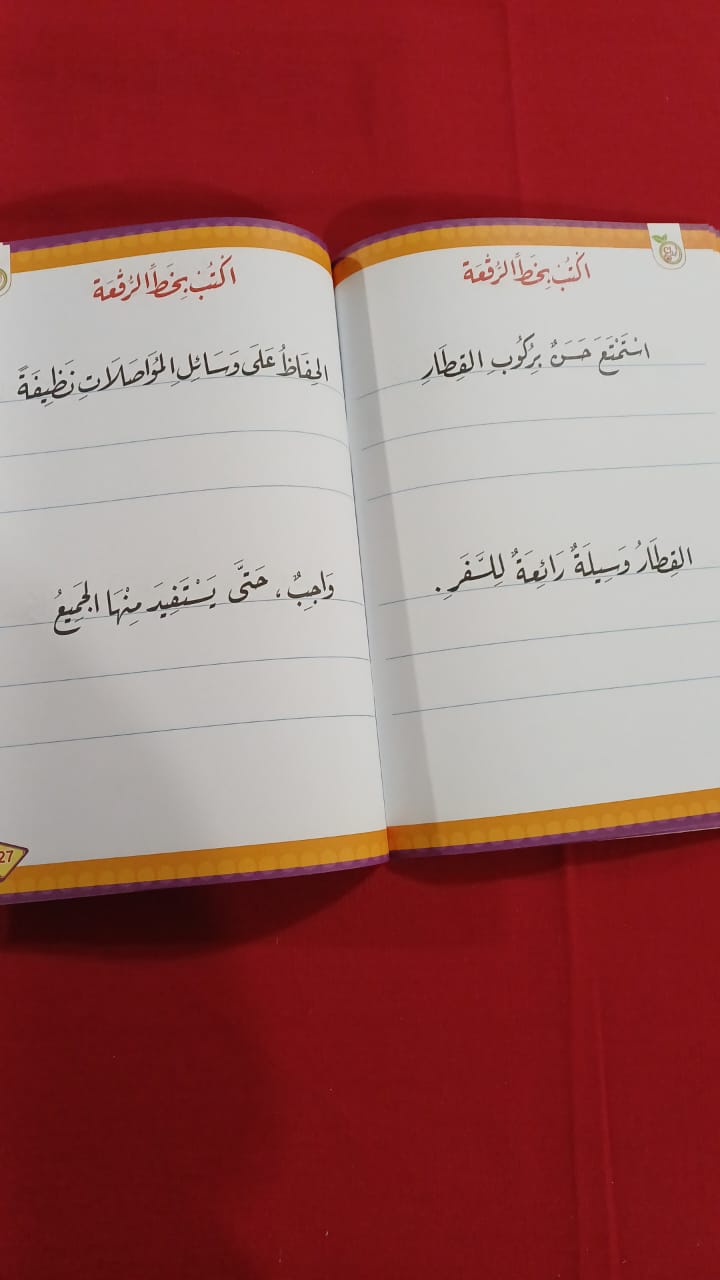 اكْتُبْ بِخَطِّ الرُّقْعَة
اسْتَمْتَعَ حَسَنٌ بِرُكُوبِ القِطَارِ
القِطَارُ وَسِيلَةٌ رَائِعَةٌ لِلسَّفَرِ.
اكْتُبْ بِخَطِّ الرُّقْعَة
الحِفَاظُ عَلَى وَسَائِلِ المُوَاصَلَاتِ نَظِيفَةً
وَاجِبٌ، حَتَّى يَسْتَفِيدَ مِنْهَا الجَمِيعُ
27